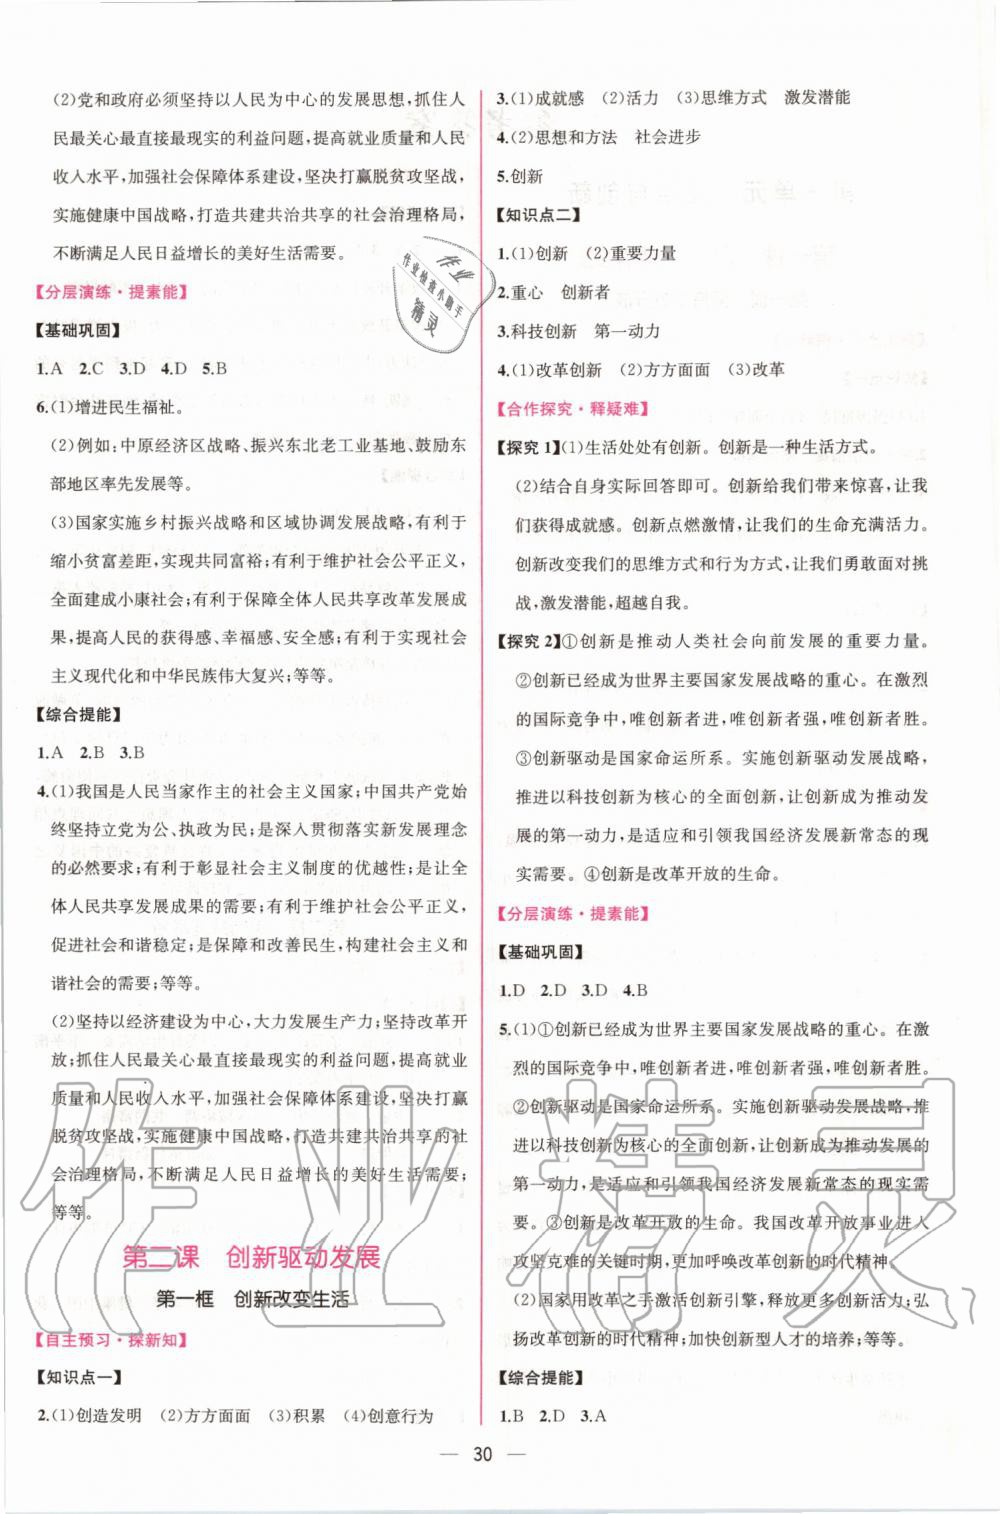 (2)党和政府必须坚持以人民为中心的发展思想,抓住人
民最关心最直接最现实的利益问题,提高就业质量和人民
收入水平,加强社会保障体系建设,坚决打赢脱贫攻坚战,
实施健康中国战略,打造共建共治共享的社会治理格局,
不断满足人民日益增长的美好生活需要。
【分层演练·提素能】
【基础巩固】
1.A 2.C 3.D 4.D 5.B
6.(1)增进民生福祉。
(2)例如:中原经济区战略、振兴东北老工业基地、鼓励东
部地区率先发展等。
(3)国家实施乡村振兴战略和区域协调发展战略,有利于
缩小贫富差距,实现共同富裕;有利于维护社会公平正义,
全面建成小康社会;有利于保障全体人民共享改革发展成
果,提高人民的获得感、幸福感、安全感;有利于实现社会
主义现代化和中华民族伟大复兴;等等。
【综合提能】
1.A 2.B 3.B
4.(1)我国是人民当家作主的社会主义国家;中国共产党始
终坚持立党为公、执政为民;是深入贯彻落实新发展理念
的必然要求;有利于彰显社会主义制度的优越性;是让全
体人民共享发展成果的需要;有利于维护社会公平正义,
促进社会和谐稳定;是保障和改善民生,构建社会主义和
谐社会的需要;等等。
(2)坚持以经济建设为中心,大力发展生产力;坚持改革开
放;抓住人民最关心最直接最现实的利益问题,提高就业
质量和人民收入水平,加强社会保障体系建设,坚决打赢
脱贫攻坚战,实施健康中国战略,打造共建共治共享的社
会治理格局,不断满足人民日益增长的美好生活需要;
等等。
第二课 创新驱动发展
第一框 创新改变生活
【自主预习·探新知】
【知识点一】
2.(1)创造发明 (2)方方面面 (3)积累 (4)创意行为
3.(1)成就感 (2)活力 (3)思维方式 激发潜能
4.(2)思想和方法 社会进步
5.创新
【知识点二】
1.(1)创新 (2)重要力量
2.重心 创新者
3.科技创新 第一动力
4.(1)改革创新 (2)方方面面 (3)改革
【合作探究·释疑难】
【探究1】(1)生活处处有创新。创新是一种生活方式。
(2)结合自身实际回答即可。创新给我们带来惊喜,让我
们获得成就感。创新点燃激情,让我们的生命充满活力。
创新改变我们的思维方式和行为方式,让我们勇敢面对挑
战,激发潜能,超越自我。
【探究2】①创新是推动人类社会向前发展的重要力量。
②创新已经成为世界主要国家发展战略的重心。在激烈
的国际竞争中,唯创新者进,唯创新者强,唯创新者胜。
③创新驱动是国家命运所系。实施创新驱动发展战略,
推进以科技创新为核心的全面创新,让创新成为推动发
展的第一动力,是适应和引领我国经济发展新常态的现
实需要。④创新是改革开放的生命。
【分层演练·提素能】
【基础巩固】
1.D 2.D 3.D 4.B
5.(1)①创新已经成为世界主要国家发展战略的重心。在激
烈的国际竞争中,唯创新者进,唯创新者强,唯创新者胜。
②创新驱动是国家命运所系。实施创新驱动发展战略,推
进以科技创新为核心的全面创新,让创新成为推动发展的
第一动力,是适应和引领我国经济发展新常态的现实需
要。③创新是改革开放的生命。我国改革开放事业进入
攻坚克难的关键时期,更加呼唤改革创新的时代精神。
(2)国家用改革之手激活创新引擎,释放更多创新活力;弘
扬改革创新的时代精神;加快创新型人才的培养;等等。
【综合提能】
1.B 2.D 3.A
30
作业
作业检查小助手
精灵
作业精灵